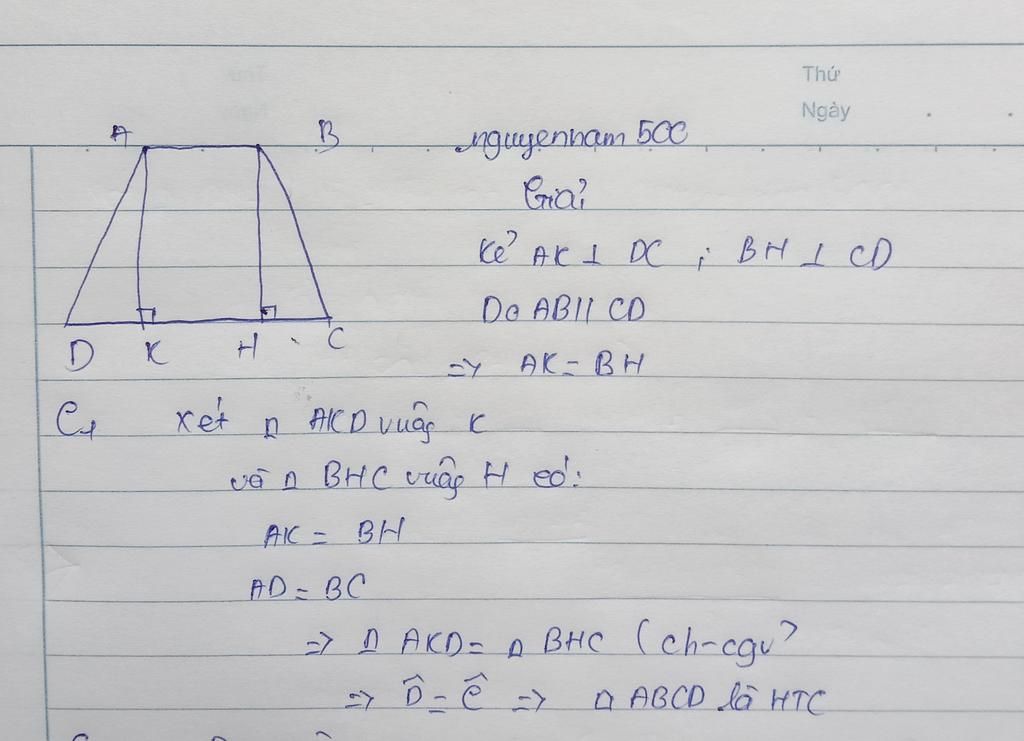 Thứ
Ngày
A B
nguyennam 500
Giải
Kẻ AK ⊥ DC ; BH ⊥ CD
Do AB // CD
D K H C
=> AK = BH
C1 Xét Δ AKD vuông K
và Δ BHC vuông H có:
AK = BH
AD = BC
=> Δ AKD = Δ BHC (ch-cgv)
=> D̂ = Ĉ => ABCD là HTC